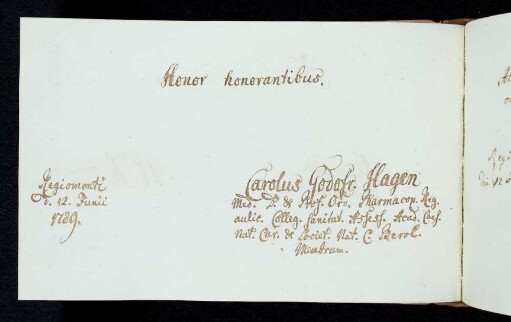 Honor honorantibus.
Regiomonti
d. 12. Junii
1789.
Carolus Godofr. Hagen
Med. D. & Prof. Ord. Pharmacop. Reg.
aulic. Colleg. Sanitat. Assess. Acad. Caes.
Nat. Cur. & Societ. Nat. C. Berol.
Membrum.